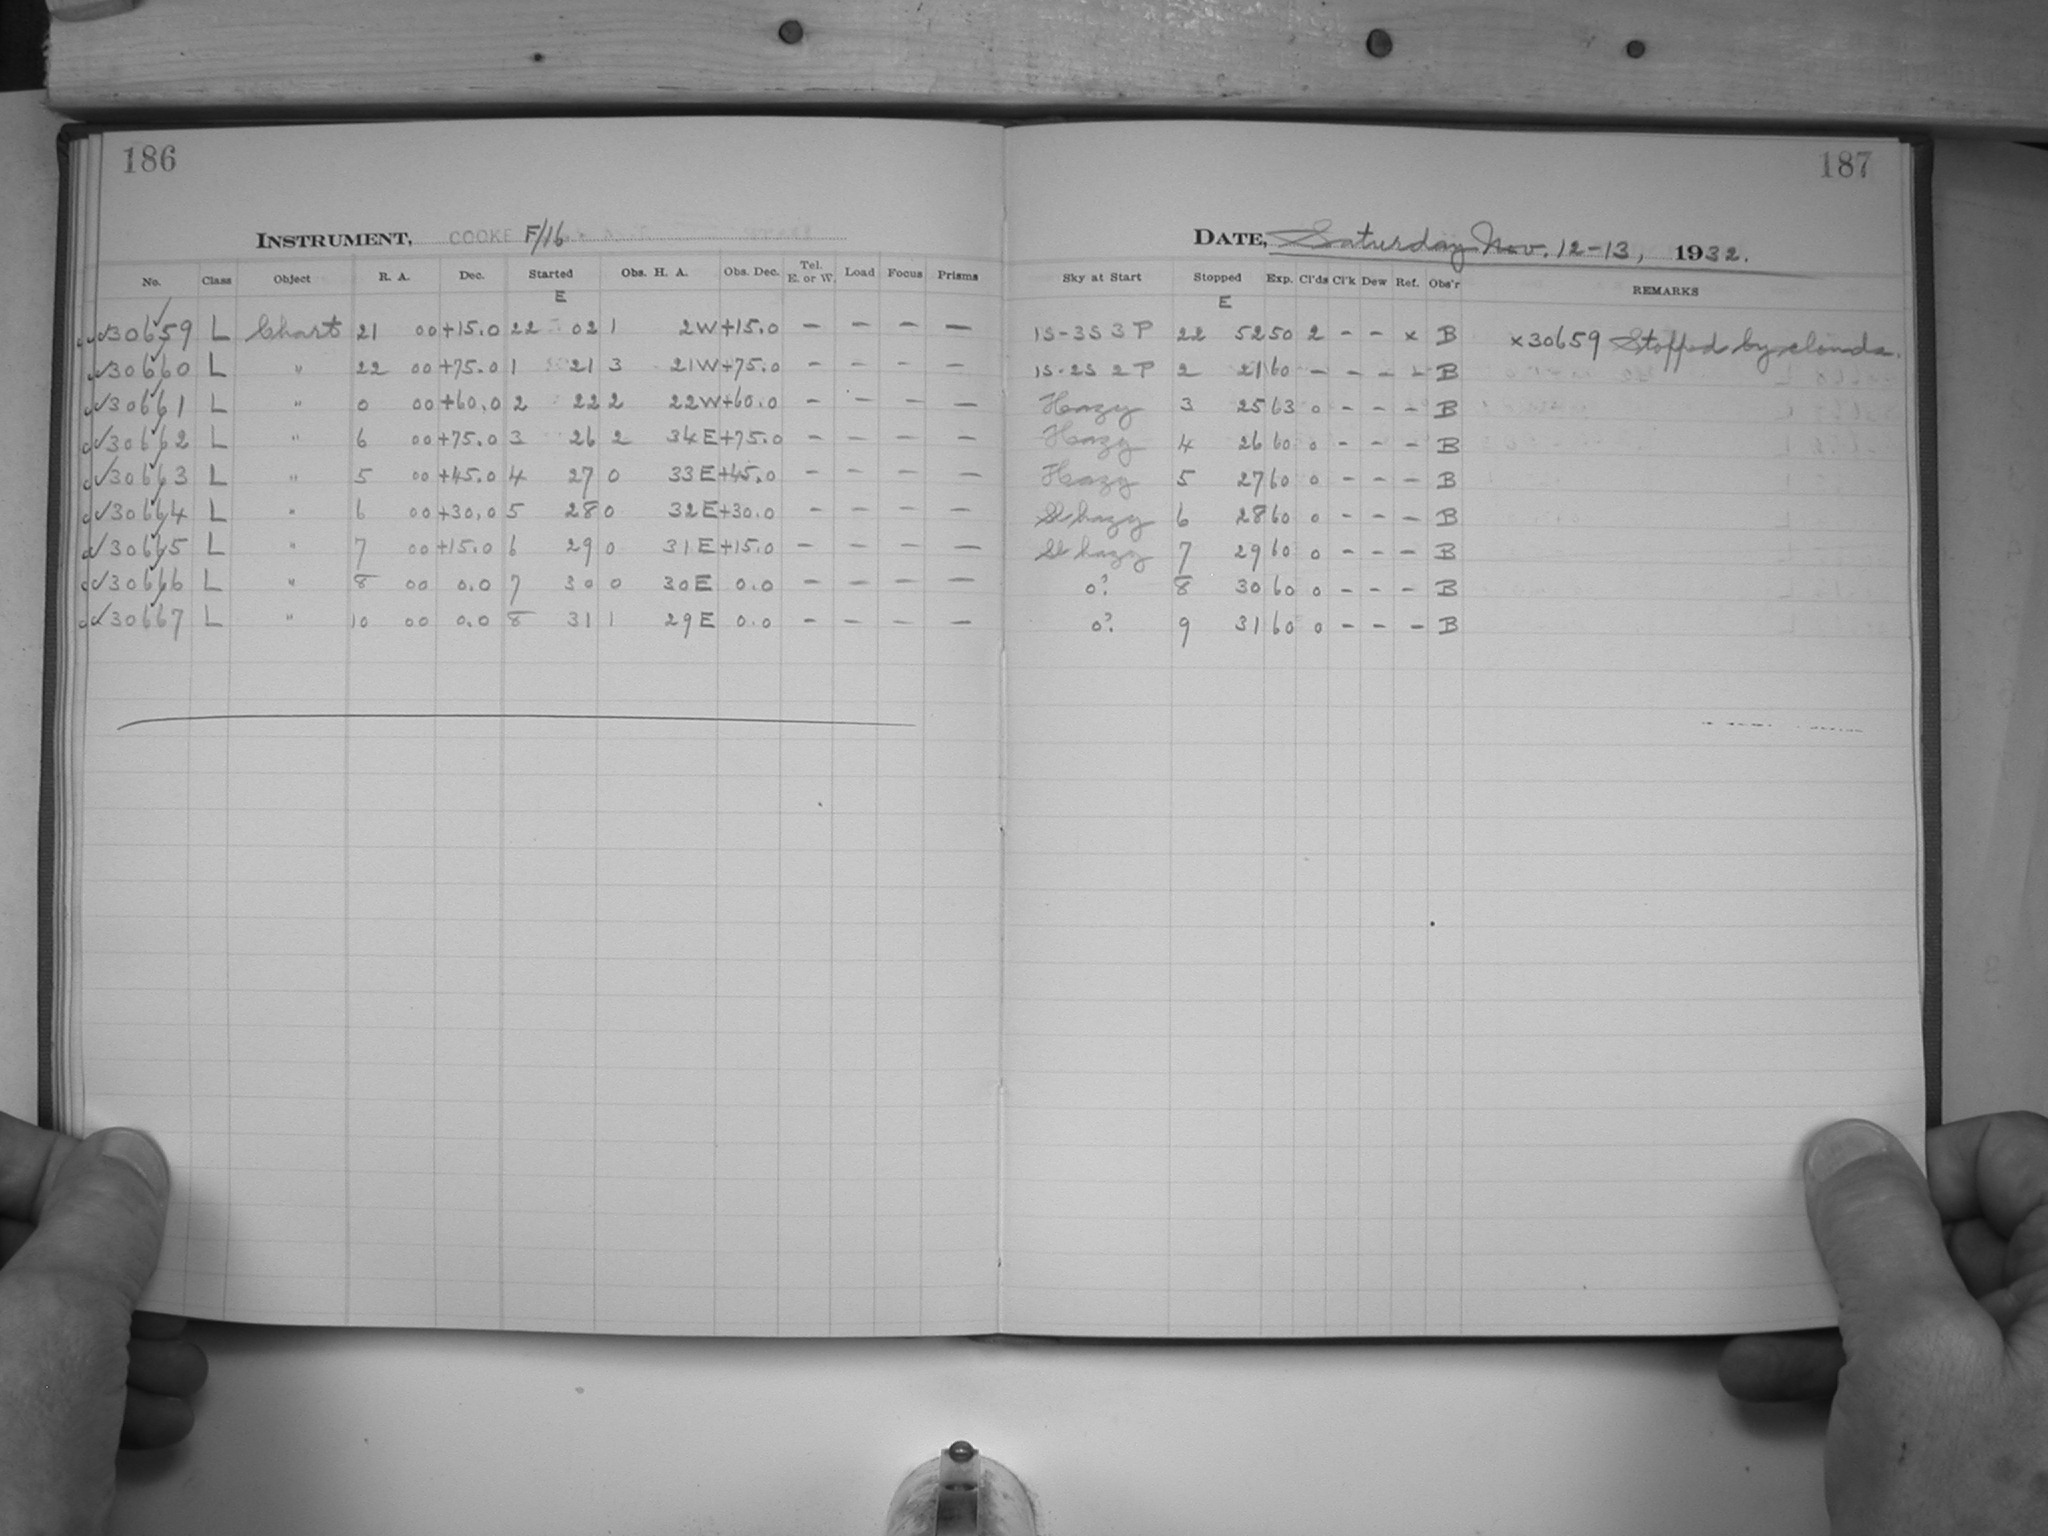 186
INSTRUMENT, COOKE F/16
No. Class Object R. A. Dec. Started Obs. H. A. Obs. Dec. Tel. E. or W. Load Focus Prisms
E
✓30659 L Chart 21 00 +15.0 22 02 1 2W +15.0 — — — —
✓30660 L " 22 00 +75.0 1 21 3 21W +75.0 — — — —
✓30661 L " 0 00 +60.0 2 22 2 22W +60.0 — — — —
✓30662 L " 6 00 +75.0 3 26 2 34E +75.0 — — — —
✓30663 L " 5 00 +45.0 4 27 0 33E +45.0 — — — —
✓30664 L " 6 00 +30.0 5 28 0 32E +30.0 — — — —
✓30665 L " 7 00 +15.0 6 29 0 31E +15.0 — — — —
✓30666 L " 8 00 0.0 7 30 0 30E 0.0 — — — —
✓30667 L " 10 00 0.0 8 31 1 29E 0.0 — — — —
187
DATE, Saturday Nov. 12-13, 1932.
Sky at Start Stopped Exp. Cl'ds Cl'k Dew Ref. Obs'r REMARKS
E
1S-3S 3P 22 52 50 2 - - x B x30659 Stopped by clouds.
1S-2S 2P 2 21 60 - - - - B
Hazy 3 25 63 0 - - - B
Hazy 4 26 60 0 - - - B
Hazy 5 27 60 0 - - - B
Sl hazy 6 28 60 0 - - - B
Sl hazy 7 29 60 0 - - - B
0? 8 30 60 0 - - - B
0? 9 31 60 0 - - - B